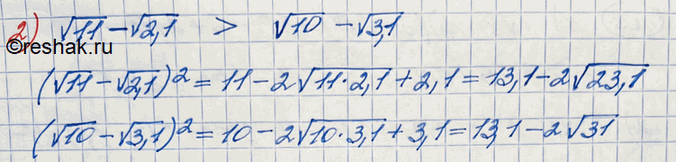 2) √11 − √2,1 > √10 − √3,1
©reshak.ru
(√11 − √2,1)² = 11 − 2√11·2,1 + 2,1 = 13,1 − 2√23,1
(√10 − √3,1)² = 10 − 2√10·3,1 + 3,1 = 13,1 − 2√31